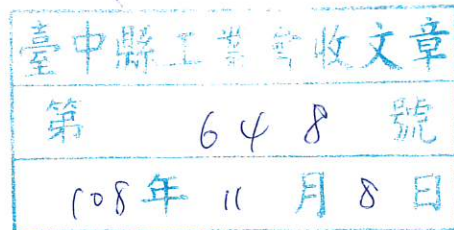 臺中縣工業會收文章
第 648 號
108年11月8日